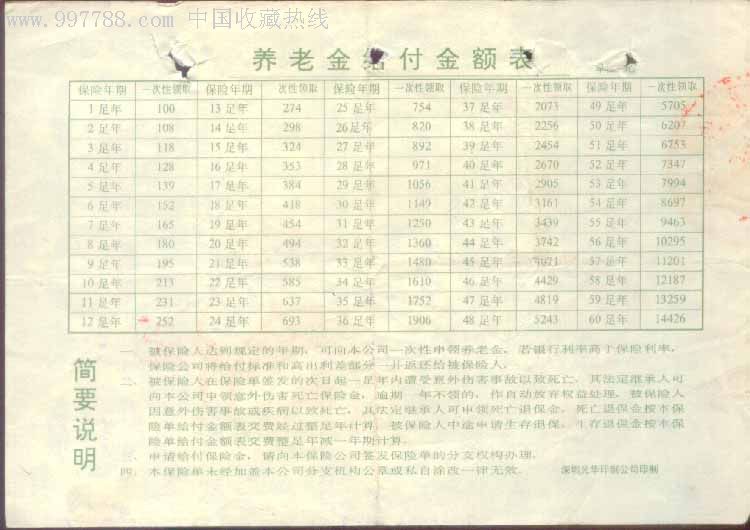 www.997788.com 中国收藏热线
养老金给付金额表
保险年期 一次性领取 保险年期 一次性领取 保险年期 一次性领取 保险年期 一次性领取 保险年期 一次性领取
1足年 100 13足年 274 25足年 754 37足年 2073 49足年 5705
2足年 108 14足年 298 26足年 820 38足年 2256 50足年 6207
3足年 118 15足年 324 27足年 892 39足年 2454 51足年 6753
4足年 128 16足年 353 28足年 971 40足年 2670 52足年 7347
5足年 139 17足年 384 29足年 1056 41足年 2905 53足年 7994
6足年 152 18足年 418 30足年 1149 42足年 3161 54足年 8697
7足年 165 19足年 454 31足年 1250 43足年 3439 55足年 9463
8足年 180 20足年 494 32足年 1360 44足年 3742 56足年 10295
9足年 195 21足年 538 33足年 1480 45足年 4071 57足年 11201
10足年 213 22足年 585 34足年 1610 46足年 4429 58足年 12187
11足年 231 23足年 637 35足年 1752 47足年 4819 59足年 13259
12足年 252 24足年 693 36足年 1906 48足年 5243 60足年 14426
简要说明
一、被保险人达到规定的年期，可向本公司一次性申领养老金，若银行利率高于保险利率，
保险公司将给付标准和高出利差部分一并返还给被保险人。
二、被保险人在保险单签发的次日起一足年内遭受意外伤害事故以致死亡，其法定继承人可
向本公司申领意外伤害死亡保险金，逾期一年不领的，作自动放弃权益处理，被保险人
因意外伤害事故或疾病以致死亡，其法定继承人可申领死亡退保金，死亡退保金按本保
险单给付金额表交费经过整足年计算。被保险人中途申请生存退保，生存退保金按本保
险单给付金额表交费整足年减一年期计算。
三、申请给付保险金，请向本保险公司签发保险单的分支机构办理。
四、本保险单未经加盖本公司分支机构公章或私自涂改一律无效。 深圳光华印制公司印制